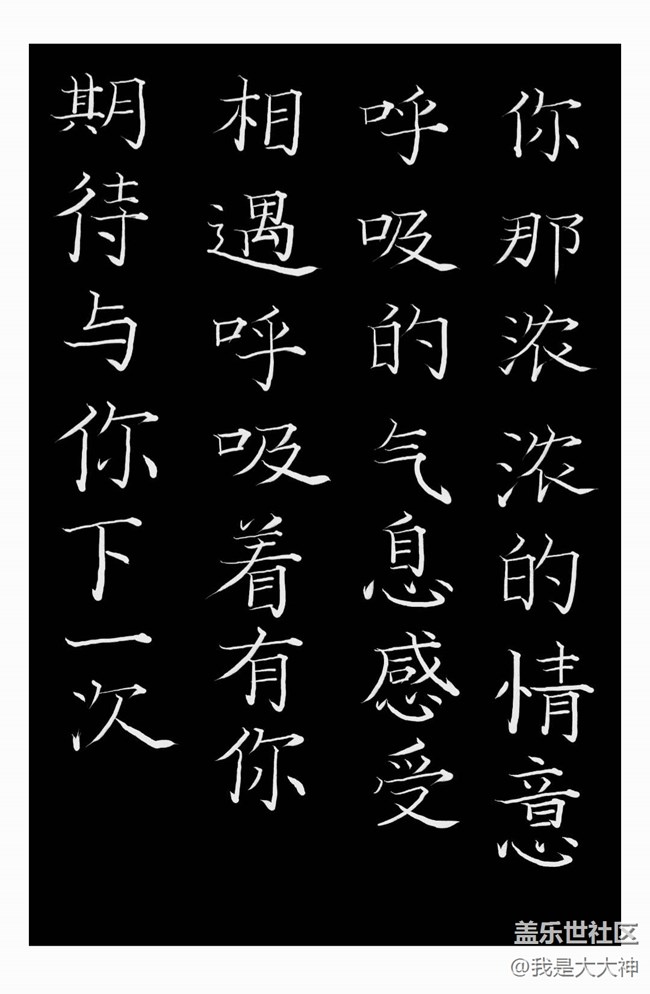 期待与你下一次
相遇呼吸着有你
呼吸的气息感受
你那浓浓的情意
盖乐世社区
@我是大大神